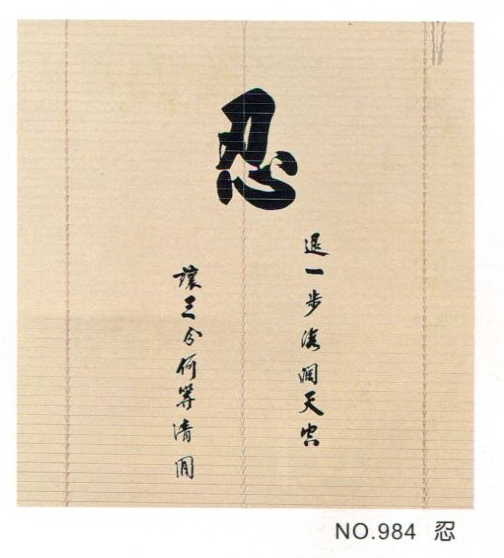 忍
退一步海濶天空
讓三分何等清閒
NO.984 忍